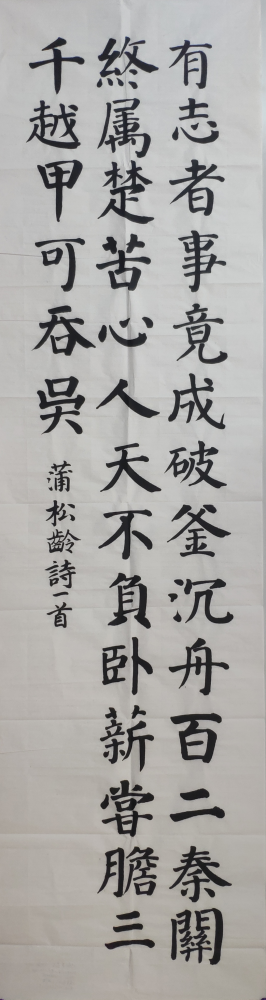 有志者事竟成破釜沉舟百二秦關
終属楚苦心人天不負卧薪嘗膽三
千越甲可吞吳
蒲松齡詩一首